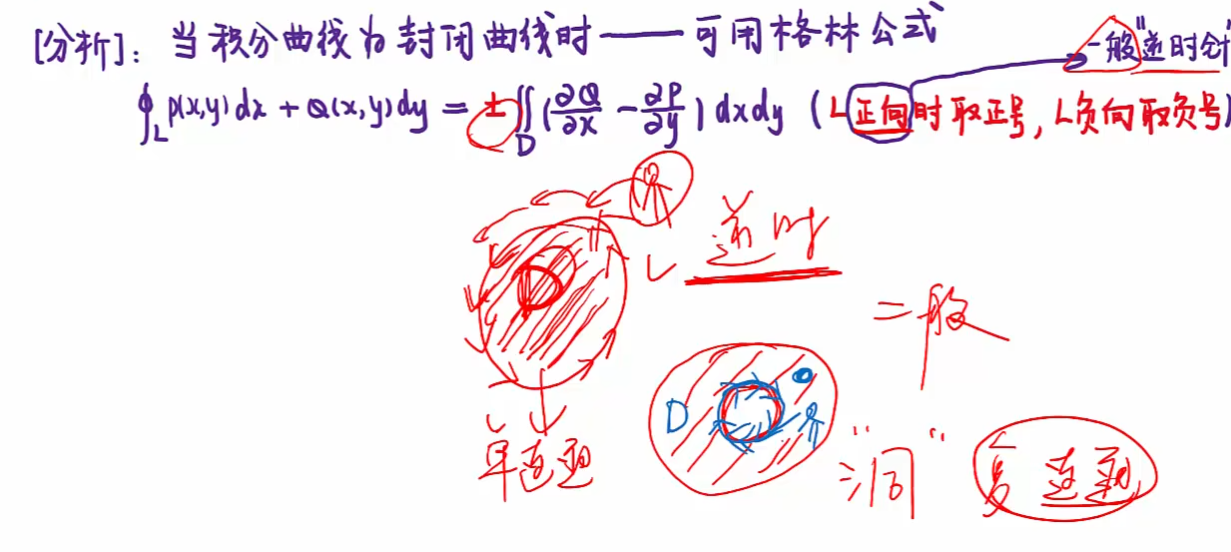 [分析]: 当积分曲线为封闭曲线时——可用格林公式
一般"逆时针"
∮_L P(x,y)dx + Q(x,y)dy = ±∬_D (∂Q/∂x - ∂P/∂y) dxdy (L正向时取正号, L负向取负号)
D
L 逆时
一般
D
单连通
"洞"
复连通